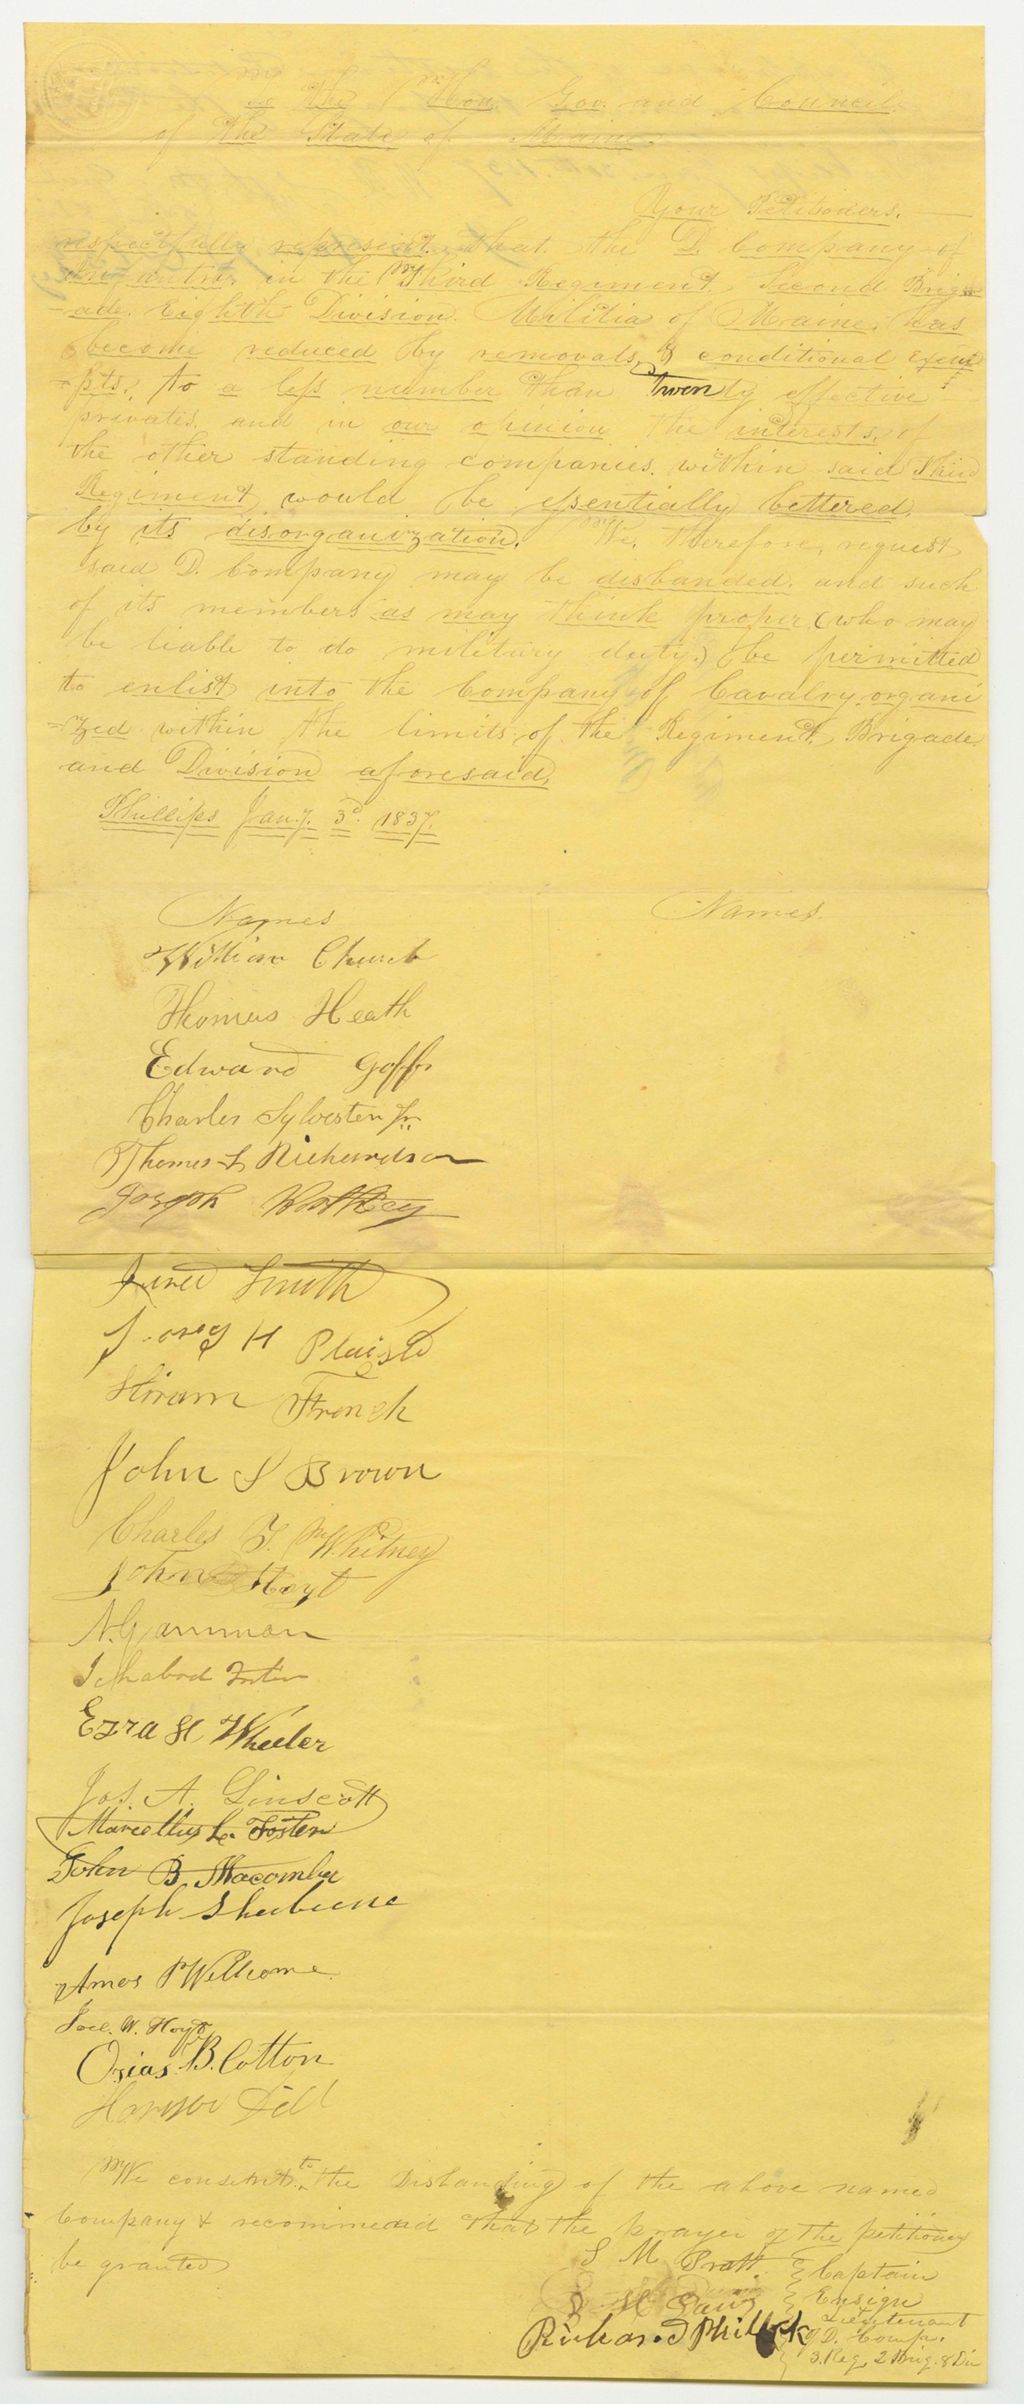 To The Hon. Gov. and Council
of the State of Maine.
Your Petitioders.
respectfully represent that the D. Company of
Infantry in the Third Regiment, Second Brig-
-ade. Eighth Division. Militia of Maine. has
become reduced by removals, & conditional Exem-
-pts, to a less number than Twenty effective
privates. and in our opinion the interests of
the other standing companies. within said Third
Regiment would be essentially bettered.
by its disorganization. We, therefore, request
said D. Company may be disbanded. and such
of its members as may think proper (who may
be liable to do military duty.) be permitted
to enlist into the Company of Cavalry, organi
-zed within the limits of the Regiment, Brigade
and Division aforesaid.
Phillips Jany. 3d. 1837.
Names Names
William Church
Thomas Heath
Edward Goff
Charles Sylvester Jr.
Thomas L Richardson
Joseph
Smith
H Plaisted
Hiram French
John S Brown
Charles F. Whitney
John Hoyt
Ichabod Foster
Ezra H Wheeler
Jos. A. Linscott
Marcellus L. Foster
John B. Macomber
Joseph
Amos Wellcome
Joel W. Hoyt
Ozias B. Cotton
Dill
We consent to the Disbanding of the above named
Company & recommend that the prayer of the petitioners
be granted
S M Pratt Captain
Ensign
Richard Phillips Lieutenant
D. Comp.
3. Reg. 2 Brig. 8 Div